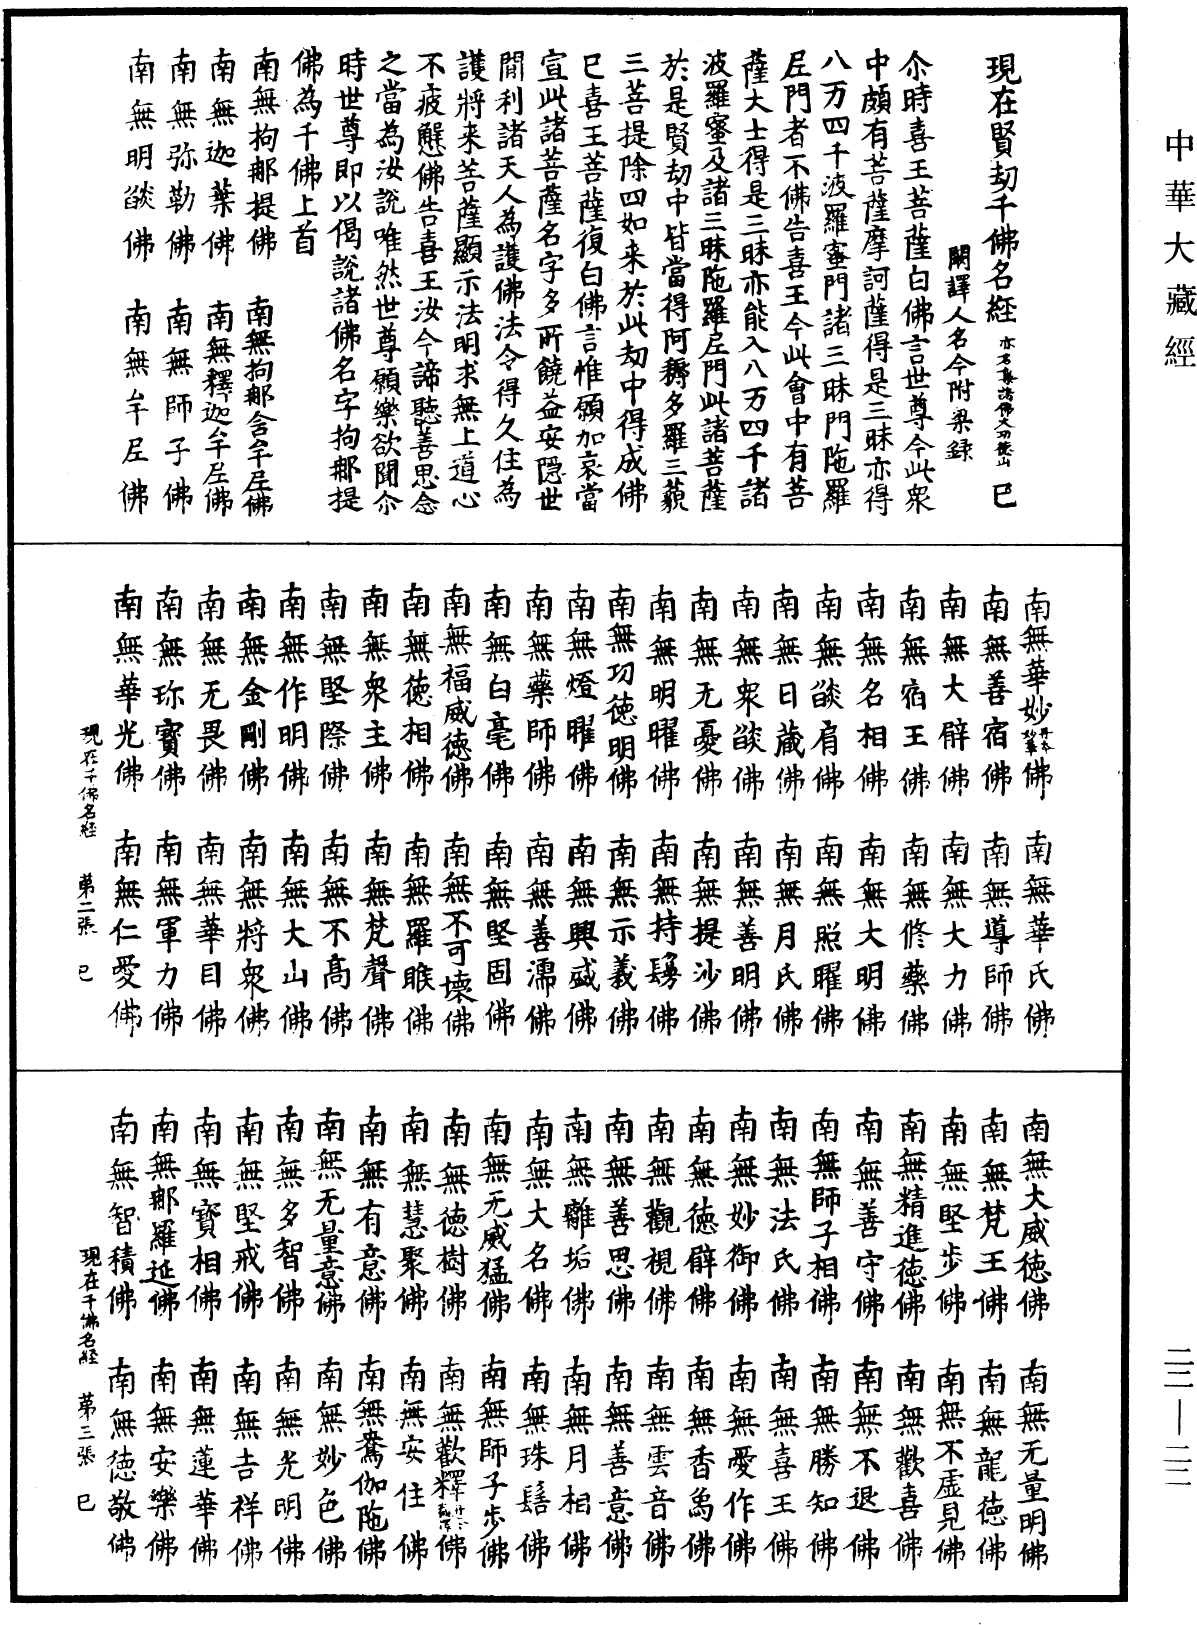 中華大藏經
二三—二二
現在賢劫千佛名經 亦名集諸佛大功德山 巳
闕譯人名今附梁錄
尒時喜王菩薩白佛言世尊今此衆
中頗有菩薩摩訶薩得是三昧亦得
八万四千波羅蜜門諸三昧門陁羅
尼門者不佛告喜王今此會中有菩
薩大士得是三昧亦能入八万四千諸
波羅蜜及諸三昧陁羅尼門此諸菩薩
於是賢劫中皆當得阿耨多羅三藐
三菩提除四如来於此劫中得成佛
已喜王菩薩復白佛言惟願加哀當
宣此諸菩薩名字多所饒益安隱世
間利諸天人為護佛法令得久住為
護將来菩薩顯示法明求無上道心
不疲懈佛告喜王汝今諦聽善思念
之當為汝說唯然世尊願樂欲聞尒
時世尊即以偈說諸佛名字拘那提
佛為千佛上首
南無拘那提佛 南無拘那含牟尼佛
南無迦葉佛 南無釋迦牟尼佛
南無弥勒佛 南無師子佛
南無明𦦨佛 南無牟尼佛
南無華妙丹本妙華佛 南無華氏佛
南無善宿佛 南無導師佛
南無大臂佛 南無大力佛
南無宿王佛 南無修藥佛
南無名相佛 南無大明佛
南無𦦨肩佛 南無照曜佛
南無日藏佛 南無月氏佛
南無衆𦦨佛 南無善明佛
南無无憂佛 南無提沙佛
南無明曜佛 南無持鬘佛
南無功德明佛 南無示義佛
南無燈曜佛 南無興盛佛
南無藥師佛 南無善濡佛
南無白毫佛 南無堅固佛
南無福威德佛 南無不可壞佛
南無德相佛 南無羅睺佛
南無衆主佛 南無梵聲佛
南無堅際佛 南無不高佛
南無作明佛 南無大山佛
南無金剛佛 南無將衆佛
南無无畏佛 南無華目佛
南無珎寶佛 南無軍力佛
南無華光佛 南無仁愛佛
現在千佛名經 第二張 巳
南無大威德佛 南無无量明佛
南無梵王佛 南無龍德佛
南無堅步佛 南無不虛見佛
南無精進德佛 南無歡喜佛
南無善守佛 南無不退佛
南無師子相佛 南無勝知佛
南無法氏佛 南無喜王佛
南無妙御佛 南無愛作佛
南無德臂佛 南無香象佛
南無觀視佛 南無雲音佛
南無善思佛 南無善意佛
南無離垢佛 南無月相佛
南無大名佛 南無珠髻佛
南無无威猛佛 南無師子步佛
南無德樹佛 南無歡釋佛
南無慧聚佛 南無安住佛
南無有意佛 南無鴦伽陁佛
南無无量意佛 南無妙色佛
南無多智佛 南無光明佛
南無堅戒佛 南無吉祥佛
南無寶相佛 南無蓮華佛
南無那羅延佛 南無安樂佛
南無智積佛 南無德敬佛
現在千佛名經 第三張 巳